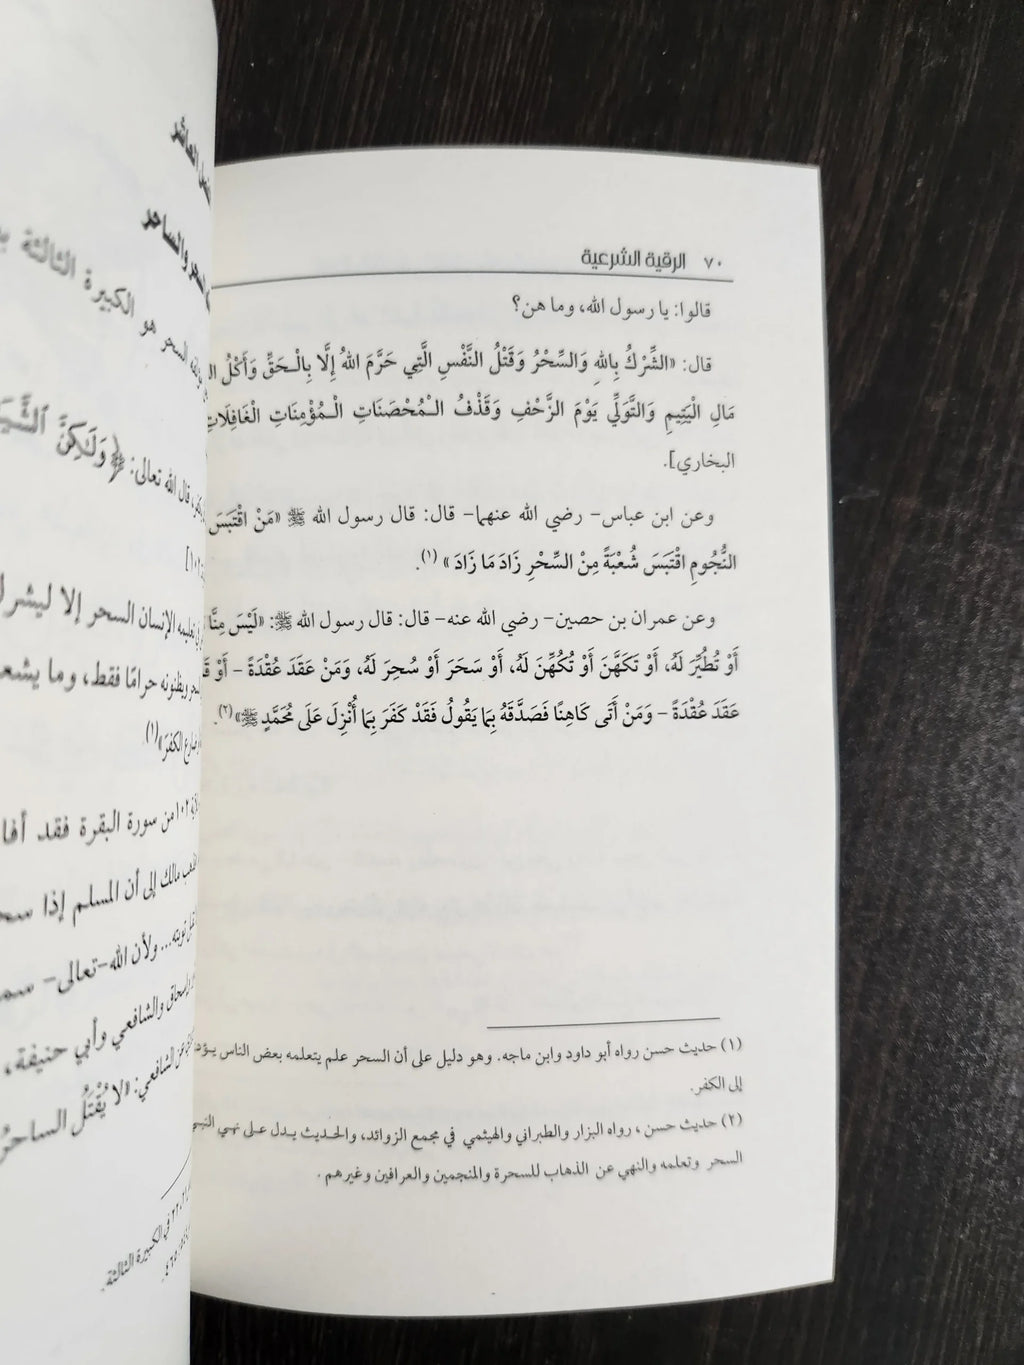 ٧٠ الرقية الشرعية
قالوا: يا رسول الله، وما هن؟
قال: «الشِّرْكُ بِاللهِ وَالسِّحْرُ وَقَتْلُ النَّفْسِ الَّتِي حَرَّمَ اللهُ إِلَّا بِالْحَقِّ وَأَكْلُ
مَالِ الْيَتِيمِ وَالتَّوَلِّي يَوْمَ الزَّحْفِ وَقَذْفُ الْمُحْصَنَاتِ الْمُؤْمِنَاتِ الْغَافِلَاتِ
البخاري].
وعن ابن عباس- رضي الله عنهما- قال: قال رسول الله ﷺ «مَنْ اقْتَبَسَ
النُّجُومِ اقْتَبَسَ شُعْبَةً مِنْ السِّحْرِ زَادَ مَا زَادَ » (١).
وعن عمران بن حصين- رضي الله عنه- قال: قال رسول الله ﷺ: «لَيْسَ مِنَّا
أَوْ تُطُيِّرَ لَهُ، أَوْ تَكَهَّنَ أَوْ تُكُهِّنَ لَهُ، أَوْ سَحَرَ أَوْ سُحِرَ لَهُ، وَمَنْ عَقَدَ عُقْدَةً - أَوْ
عَقَدَ عُقْدَةً - وَمَنْ أَتَى كَاهِنًا فَصَدَّقَهُ بِمَا يَقُولُ فَقَدْ كَفَرَ بِمَا أُنْزِلَ عَلَى مُحَمَّدٍ ﷺ»(٢).
(١) حديث حسن رواه أبو داود وابن ماجه. وهو دليل على أن السحر علم يتعلمه بعض الناس
إلى الكفر.
(٢) حديث حسن ، رواه البزار والطبراني والهيثمي في مجمع الزوائد، والحديث يدل على نهي
السحر وتعلمه والنهي عن الذهاب للسحرة والمنجمين والعرافين وغيرهم .
والساحر
السحر هو الكبيرة الثالثة
قال الله تعالى: ﴿وَلَٰكِنَّ
تعليمه الإنسان السحر إلا
ويظنونه حرامًا فقط، وما
الكفر»(١)
١٠٢ من سورة البقرة فقد
مالك إلى أن المسلم إذا
ولأن الله-تعالى-
وإسحاق والشافعي وأبي حنيفة،
عن الشافعي: «لا يُقْتَلُ الساحرُ
في الكبيرة الثالثة.